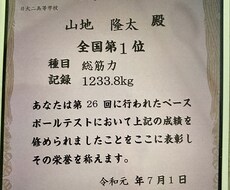 山地 隆太 殿
全国第1位
種目 総筋力
記録 1233.8kg
あなたは第 26 回に行われたベース
ボールテストにおいて上記の成績を
修められましたことをここに表彰し
その栄誉を称えます。
令和元 年 7 月 1 日